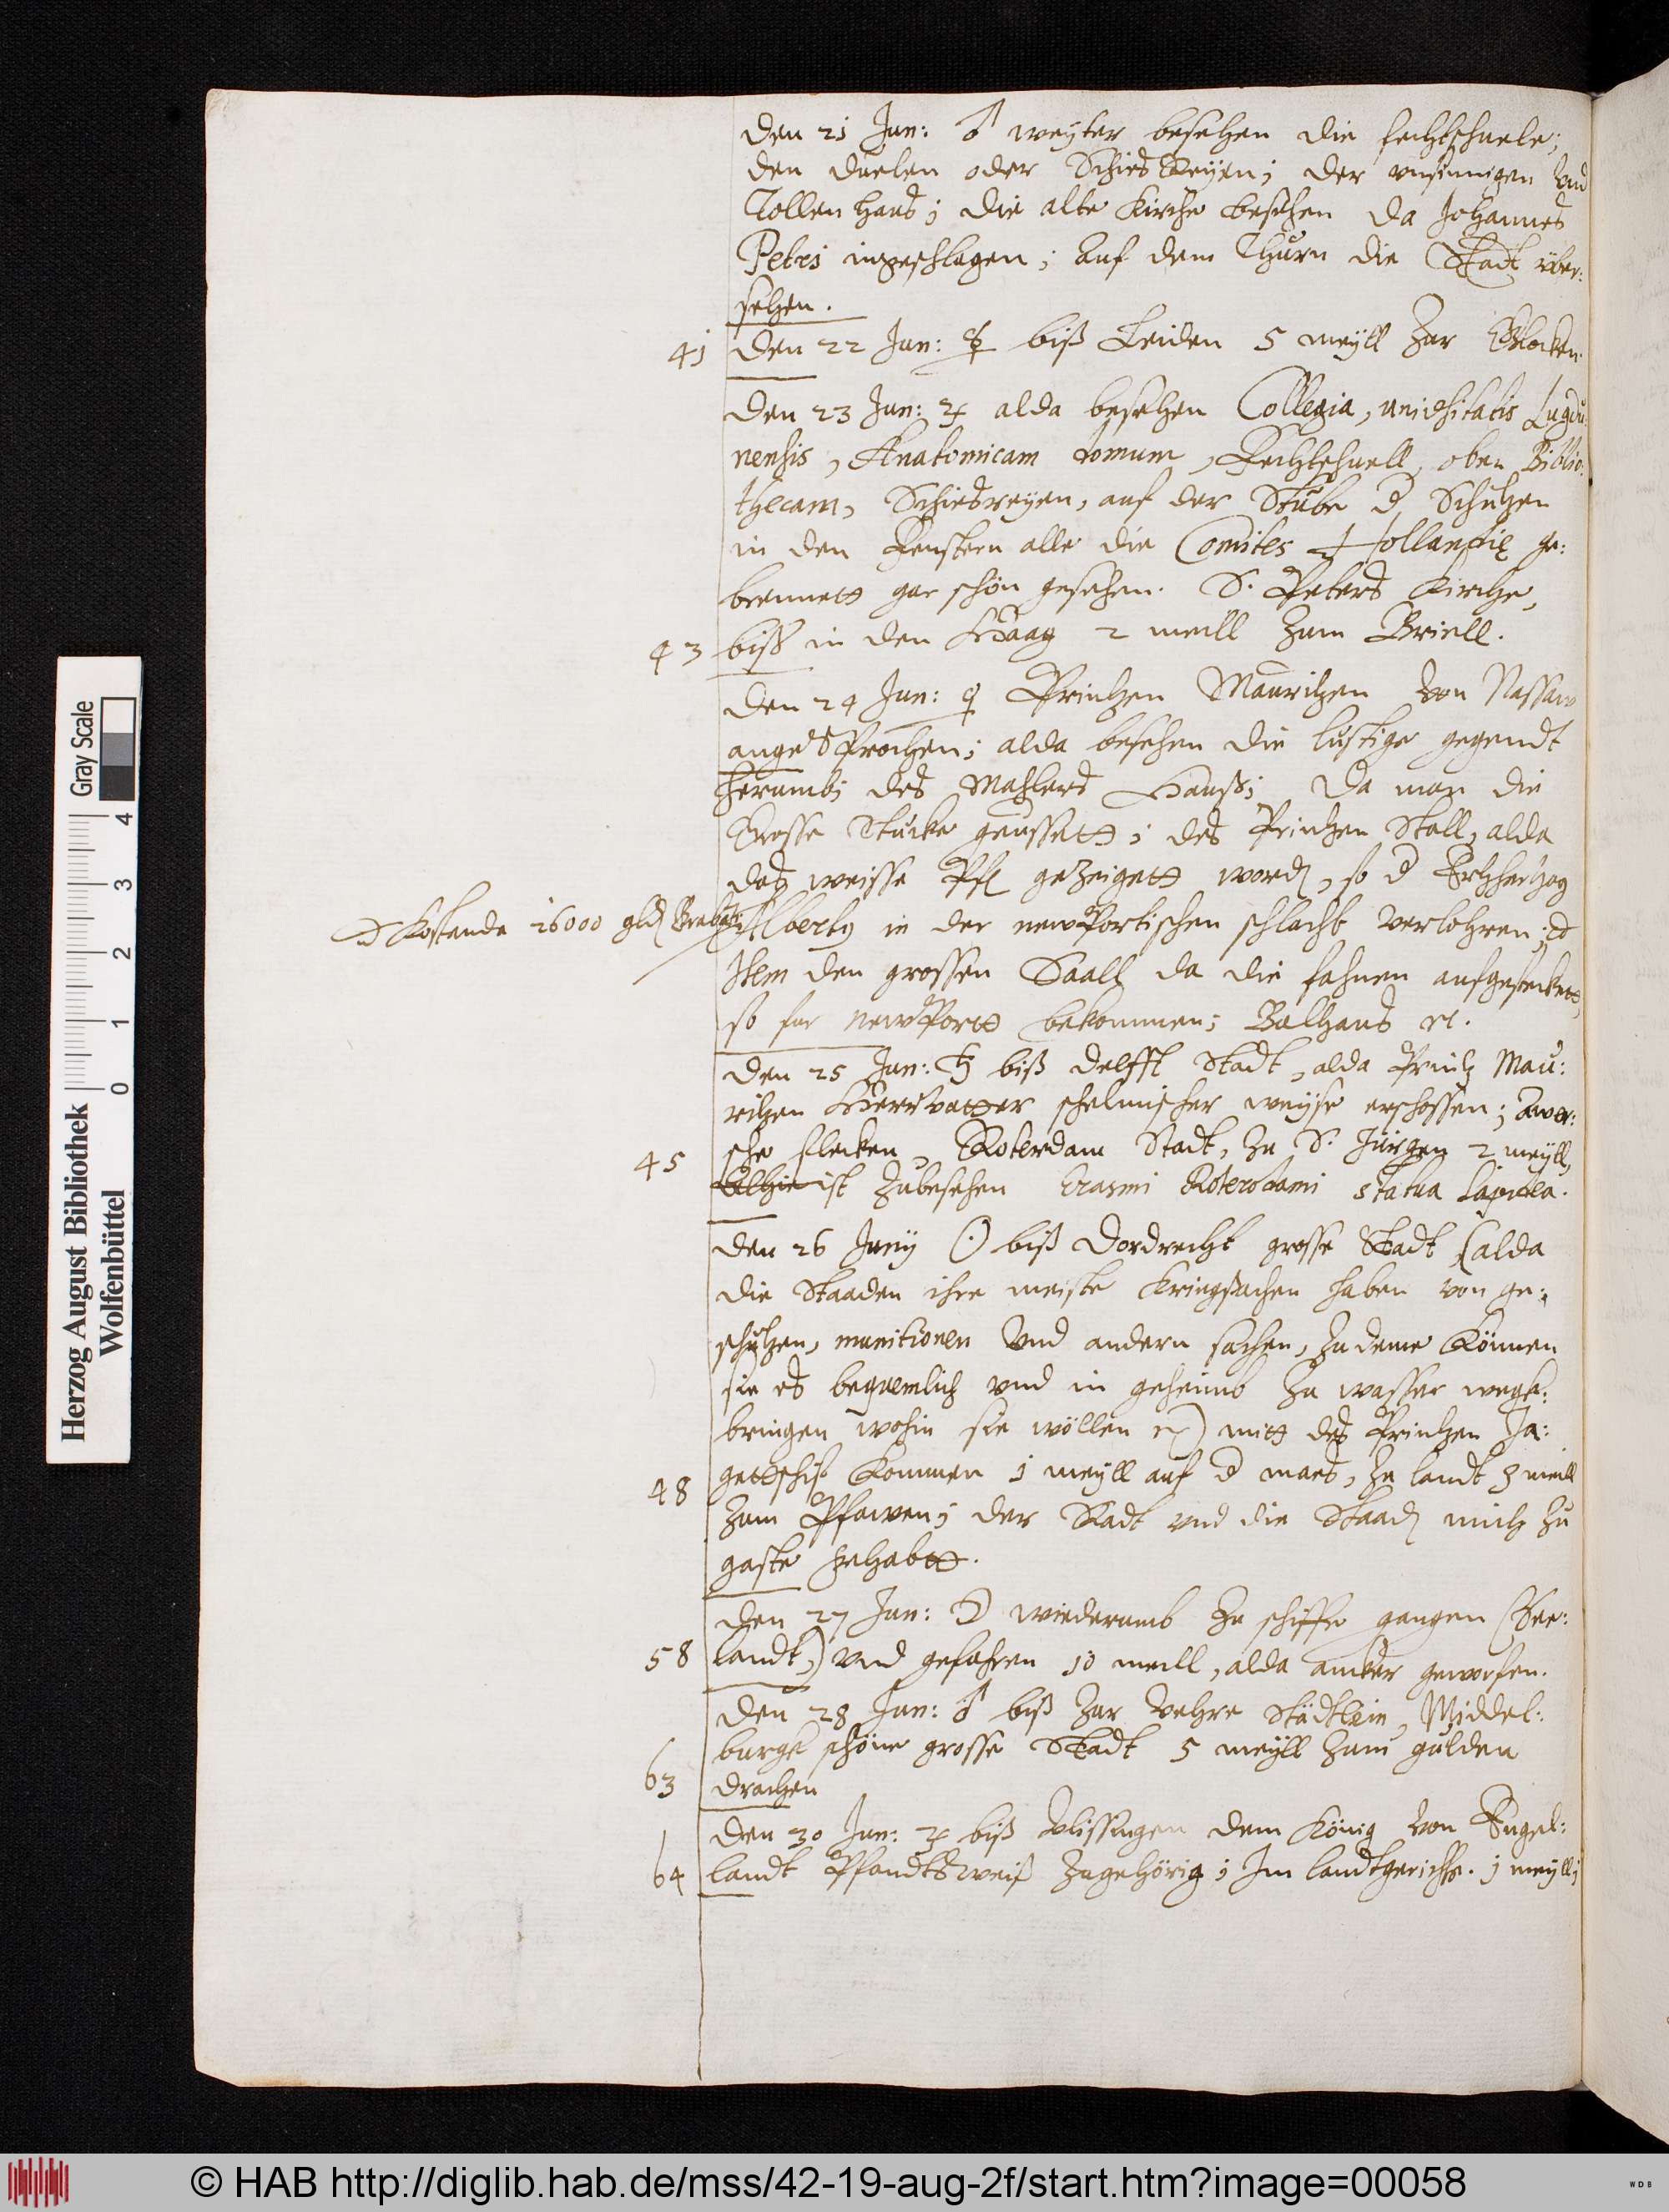 den 21 Jun: ♂ weyter besehen die fechtschuele;
den duelen oder Schiesreyen; der unsinnigen und
Tollen Haus; die alte Kirche besehen da Johannes
Petri ingeschlagen; auf dem Thurn die Stadt über:
sehen.
41 den 22 Jun: ☿ biß Leiden 5 meyll zur Glocken.
den 23 Jun: ♃ alda besehen Collegia, universitatis Lugdu:
nensis, Anatomicam domum, Fechtschuell, oben Biblio:
thecam, Schiesreyen, auf der Stube d Schutzen
in den Fenstern alle die Comites Hollandiæ ge:
brennett gar schön gesehen. S. Peters Kirche,
43 biß in den Haag 2 meill zum Briell.
den 24 Jun: ♀ Printzen Mauritzen von Nassaw
angesprochen; alda besehen die lustige gegendt
herumb; des Mahlers Hauß; da man die
Grosse Stucke geussett; des Printzen Stall, alda
das weisse Pf gezeigett word, so d Ertzhertzog
Kostende 16000 gld Brab
Alberty in der newportischen schlacht verlohren;
Item den grossen Saall da die fahnen aufgesteckett,
so fur Newportt bekommen; Balhaus etc.
den 25 Jun: ♄ biß Delfft Stadt, alda Printz Mau:
ritzen Herrvatter schelmischer weyse erschossen; Awer:
45 sche flecken, Roterdam Stadt, zu S. Jürgen 2 meyll,
Alhie ist zubesehen Erasmi Roterodami statua lapidea.
den 26 Juny ☉ biß Dordrecht grosse Stadt (alda
die Staaden ihre meiste Kriegsachen haben von ge:
schützen, munitionen und andern sachen, zu deme können
sie es bequemlich und in geheimb zu wasser wegk:
bringen wohin sie wöllen etc) mitt des Printzen Ja:
48 gettschif kommen 1 meyll auf d maes, zu landt 3 meill
zum Pfawen; der Radt und die Staad mich zu
gaste gehabtt.
den 27 Jun: ☽ wiederumb zu schiffe gangen (See:
58 landt,) und gefahren 10 meill, alda ancker geworfen.
den 28 Jun: ♂ biß zur Vehre Städtlein, Middel:
burgk schöne grosse Stadt 5 meyll zum gulden
63 drachen
den 30 Jun: ♃ biß Vlissingen dem König von Engel:
64 landt Pfandtsweiß zugehörig; Im landtgericht. 1 meyll;
Herzog August Bibliothek
Wolfenbüttel
0 1 2 3 4
Gray Scale
© HAB http://diglib.hab.de/mss/42-19-aug-2f/start.htm?image=00058
WDB